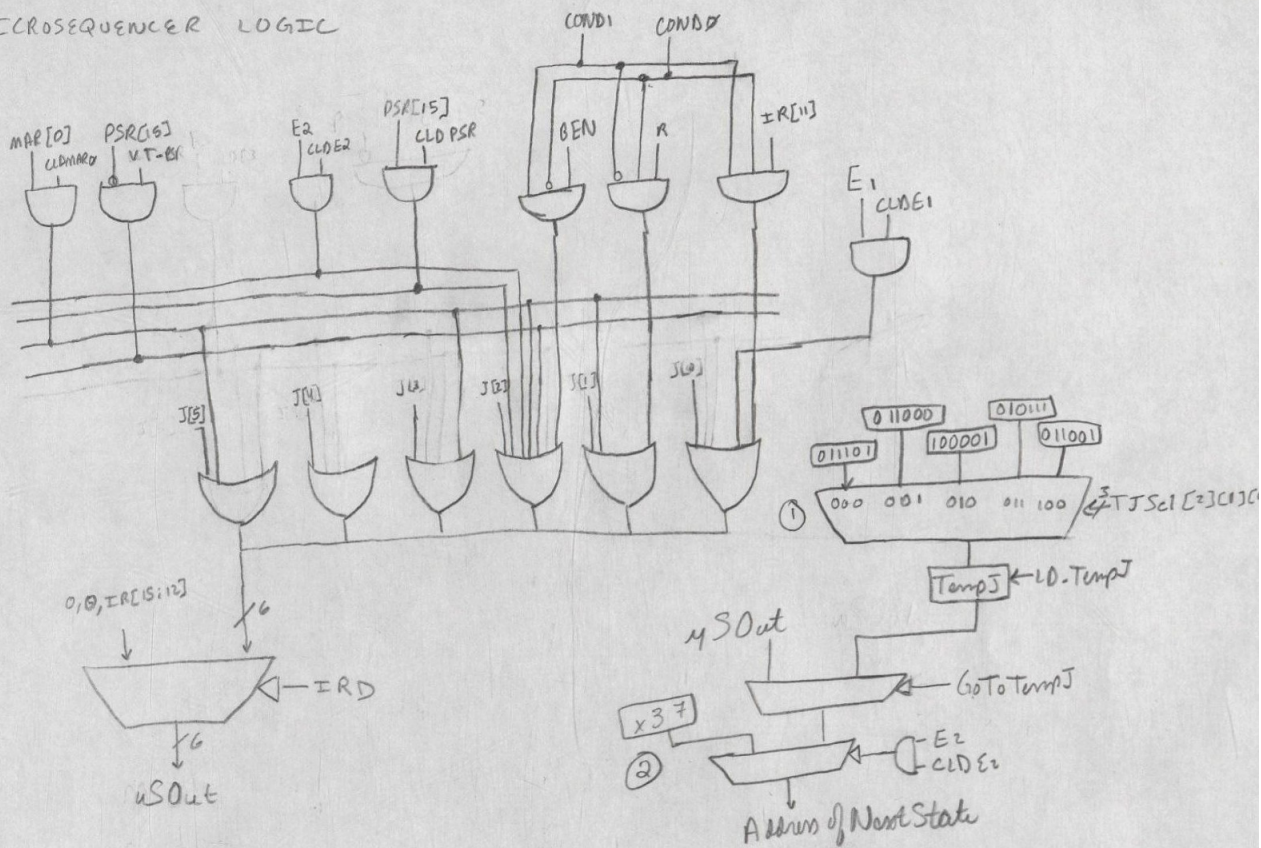 ICROSEQUENCER LOGIC
COND1 CONDØ
MAR[0] CLDMARØ
PSR[15]
E2 CLDE2
PSR[15] CLDPSR
BEN
R
IR[11]
E1 CLDE1
J[5]
J[4]
J[2]
J[1]
011000
010111
011101
100001
011001
000 001 010 011 100
①
3
TempJ
LD.TempJ
0,0,IR[15:12]
6
IRD
6
uSOut
µSOut
GoToTempJ
x37
②
E2
CLDE2
Address of Next State